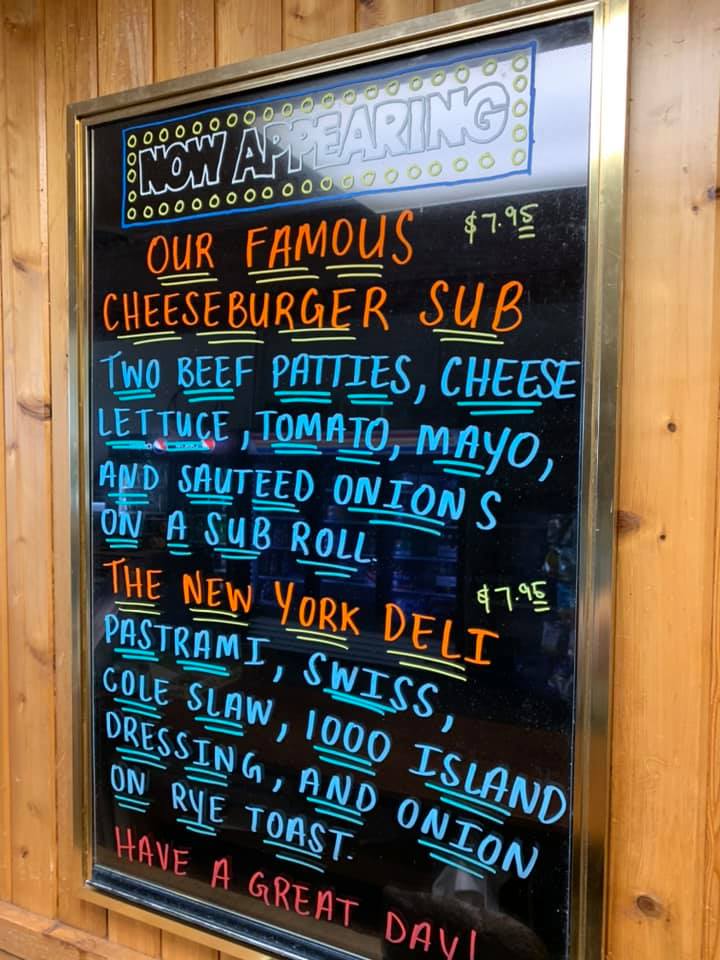 NOW APPEARING
OUR FAMOUS $7.95
CHEESEBURGER SUB
TWO BEEF PATTIES, CHEESE
LETTUCE, TOMATO, MAYO,
AND SAUTEED ONIONS
ON A SUB ROLL.
THE NEW YORK DELI $7.95
PASTRAMI, SWISS,
COLE SLAW, 1000 ISLAND
DRESSING, AND ONION
ON RYE TOAST.
HAVE A GREAT DAY!